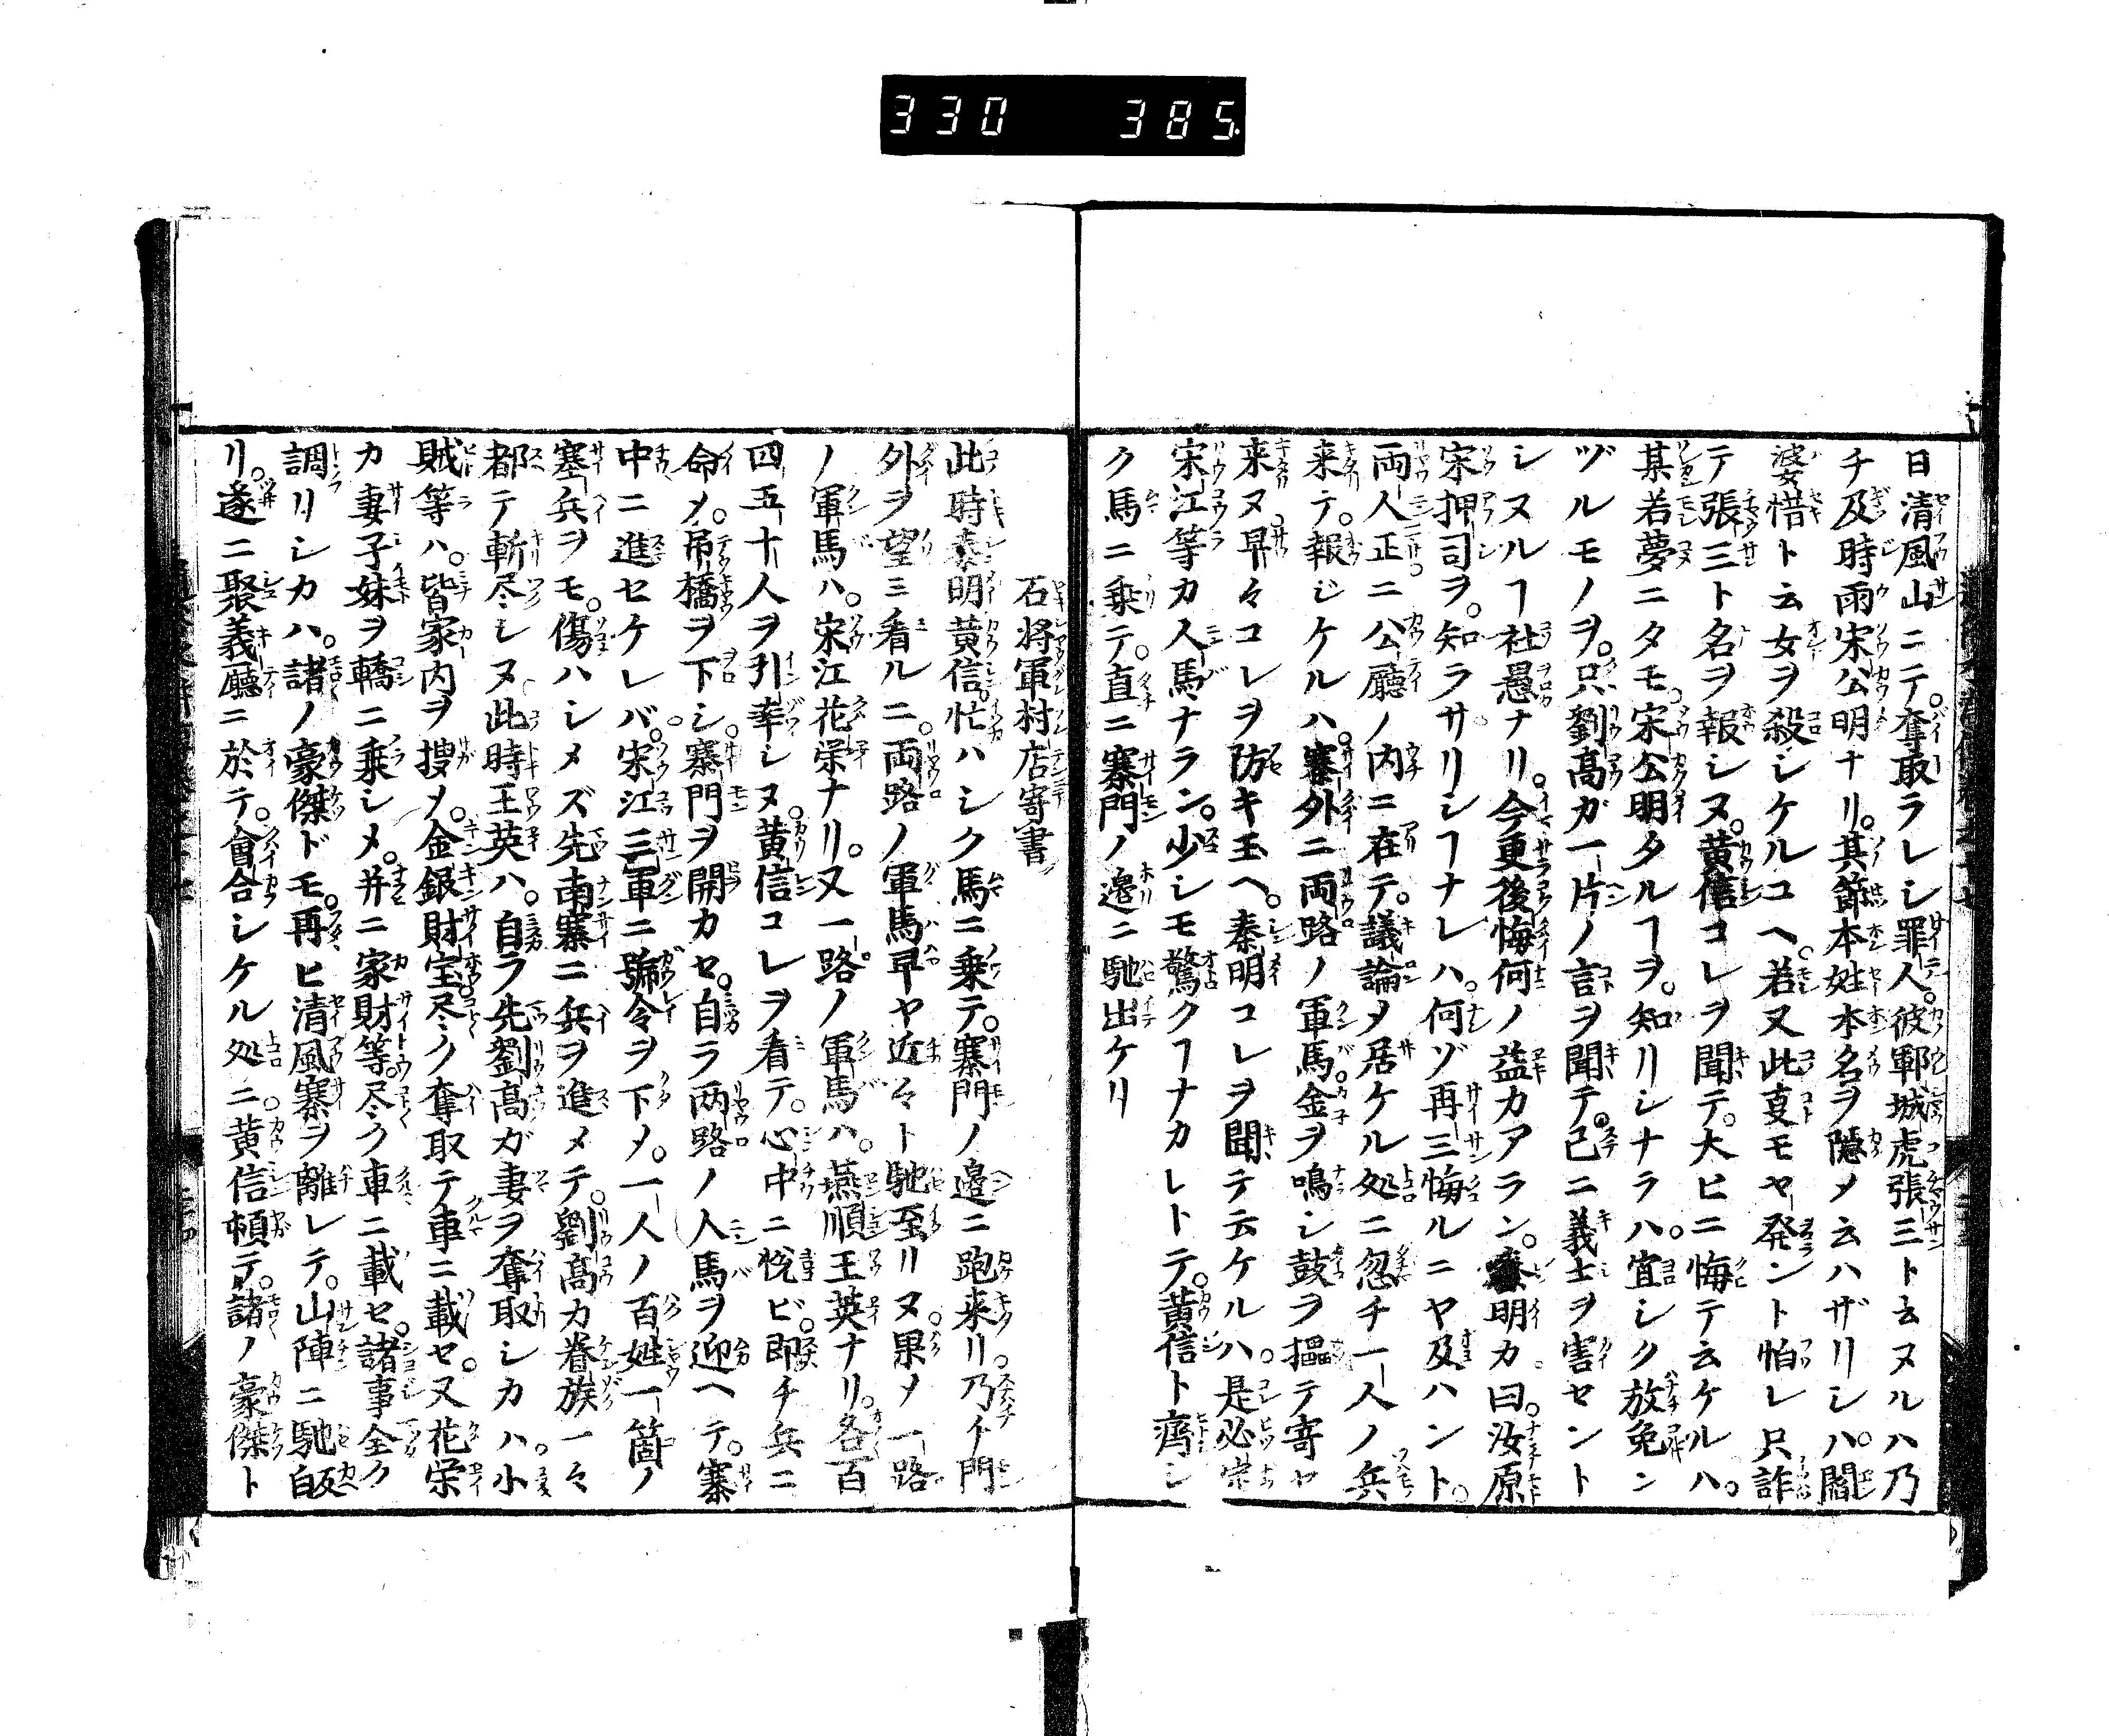 330 385
日清風山ニテ。奪取ラレシ罪人。彼鄆城虎張三ト云ヌルハ乃
チ及時雨宋公明ナリ。其節本姓本名ヲ隠メ云ハザリシハ。閻
婆惜ト云女ヲ殺シケルユヘ。若又此叓モヤ発ント怕レ只詐
テ張三ト名ヲ報シヌ。黄信コレヲ聞テ。大ヒニ悔テ云ケルハ。
某若夢ニタモ。宋公明タルヿヲ。知リシナラハ。宜シク放免ン
ヅルモノヲ。只劉高ガ一片ノ言ヲ聞テ。已ニ義士ヲ害セント
シヌルヿ社愚ナリ。今更後悔何ノ益カアラン。秦明カ曰。汝原
宋押司ヲ。知ラサリシヿナレハ。何ゾ再三悔ルニヤ及ハント。
両人正ニ公廳ノ内ニ在テ。議論メ居ケル処ニ忽チ一人ノ兵
来テ。報ジケルハ。寨外ニ両路ノ軍馬。金ヲ鳴シ鼓ヲ擂テ寄セ
来ヌ。早々コレヲ防キ玉ヘ。秦明コレヲ聞テ云ケルハ。是必宋
宋江等カ人馬ナラン。少シモ驚クヿナカレトテ。黄信ト齊シ
ク馬ニ乗テ。直ニ寨門ノ邉ニ馳出ケリ
石将軍村店寄書
此時秦明黄信忙ハシク馬ニ乗テ。寨門ノ邉ニ跑来リ。乃チ門
外ヲ望ミ看ルニ。両路ノ軍馬早ヤ近々ト馳至リヌ。果メ一路
ノ軍馬ハ。宋江花栄ナリ。又一路ノ軍馬ハ。燕順王英ナリ。各百
四五十人ヲ引率シヌ。黄信コレヲ看テ。心中ニ悦ビ。即チ兵ニ
命メ。吊橋ヲ下シ。寨門ヲ開カセ。自ラ両路ノ人馬ヲ迎ヘテ。寨
中ニ進セケレバ。宋江三軍ニ號令ヲ下メ。一人ノ百姓一箇ノ
塞兵ヲモ。傷ハシメズ先南寨ニ兵ヲ進メテ。劉高カ眷族一々
都テ斬尽シヌ此時王英ハ。自ラ先劉高ガ妻ヲ奪取シカハ。小
賊等ハ。皆家内ヲ捜メ。金銀財宝尽ク奪取テ車ニ載セ。又花栄
カ妻子妹ヲ轎ニ乗シメ。并ニ家財等。尽ク車ニ載セ。諸事全ク
調リシカハ。諸ノ豪傑ドモ。再ヒ清風寨ヲ離レテ。山陣ニ馳皈
リ。遂ニ聚義廳ニ於テ。會合シケル処ニ。黄信頓テ。諸ノ豪傑ト